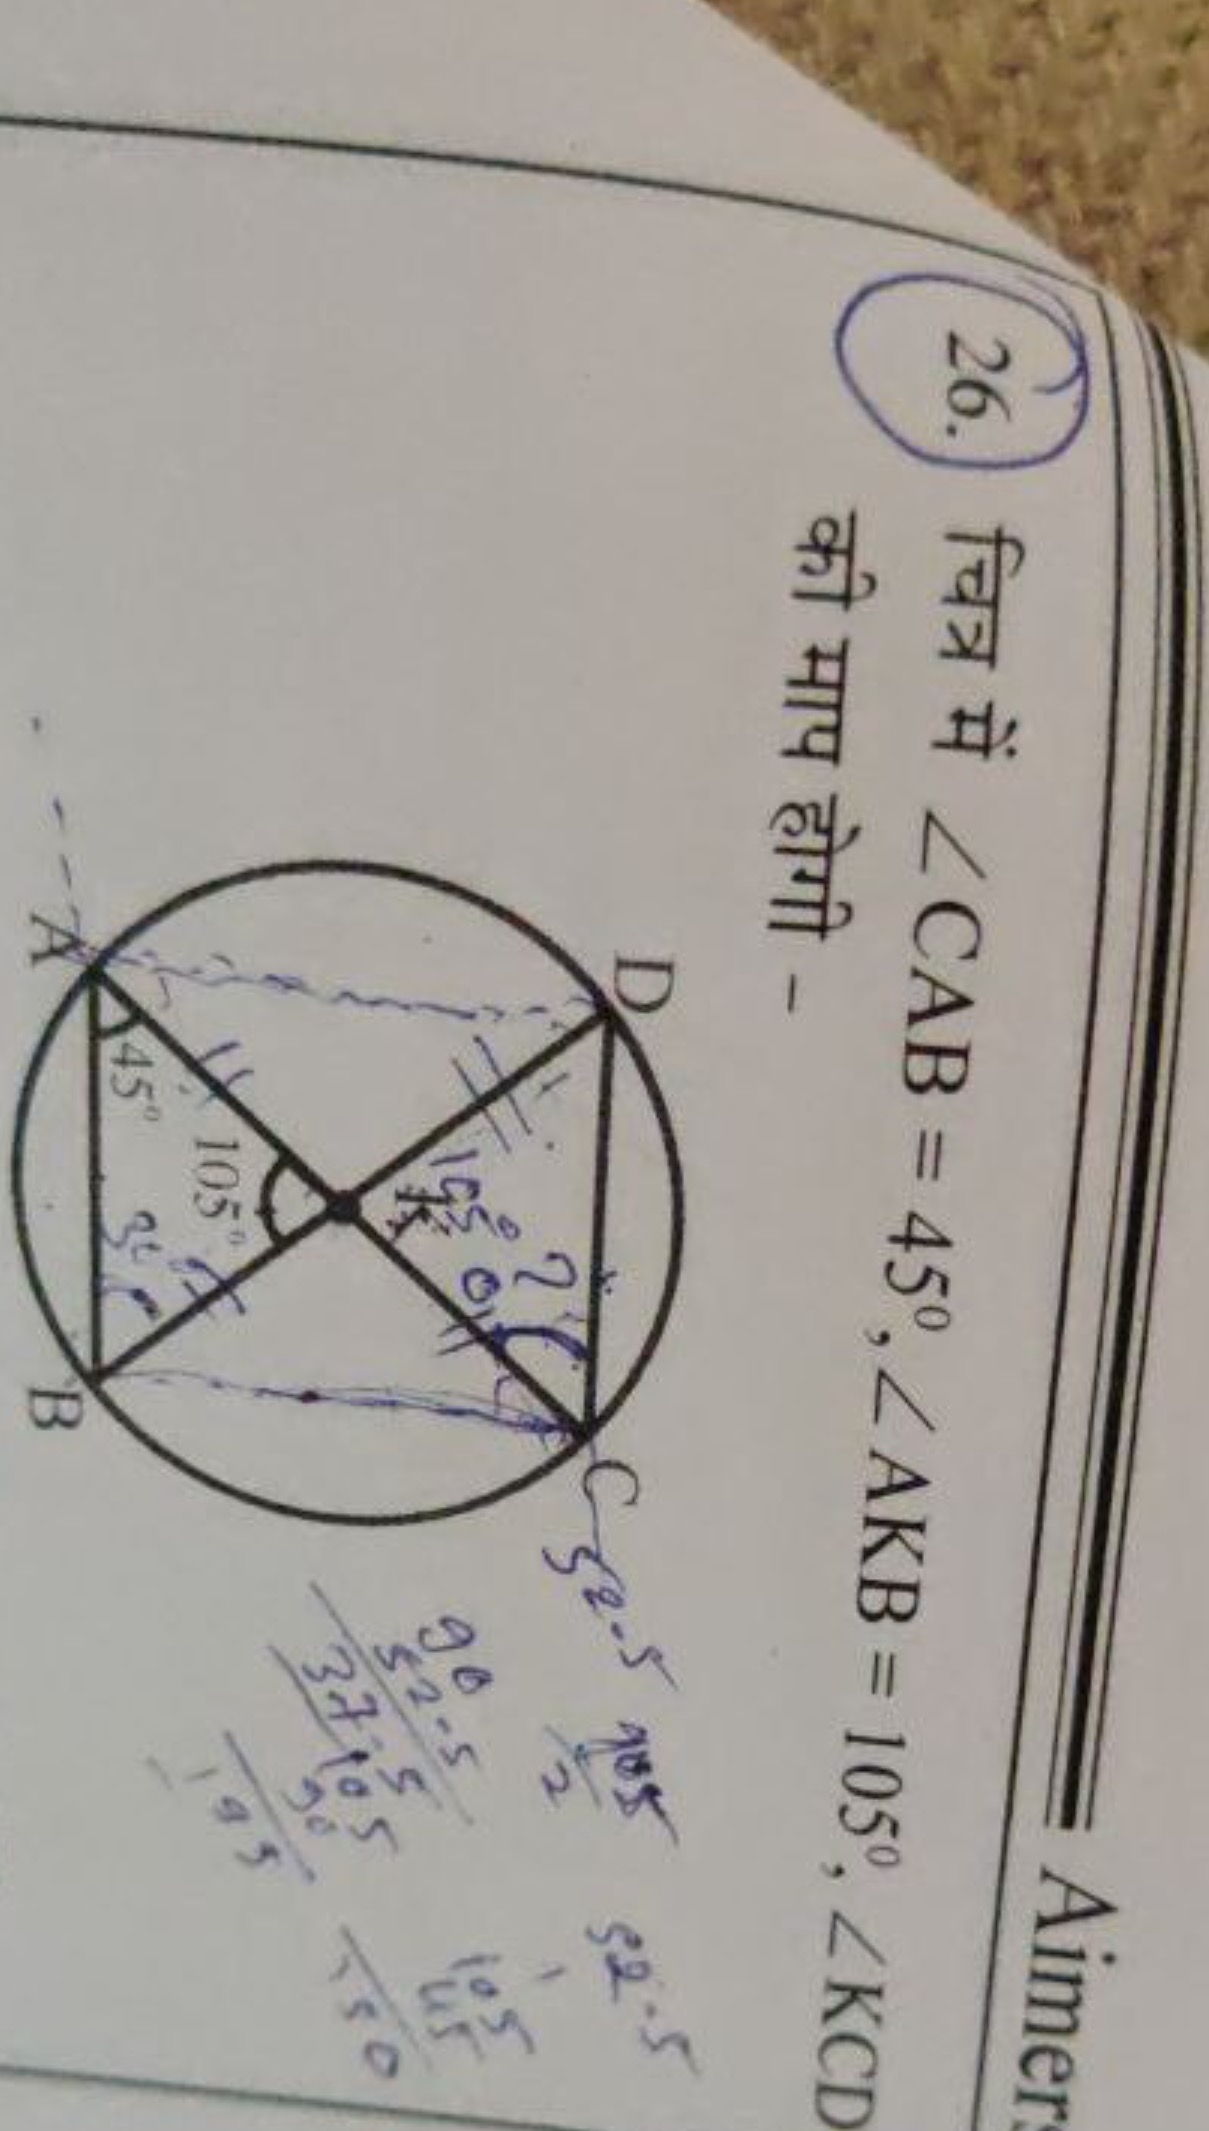 Aimers
26. चित्र में ∠CAB = 45⁰, ∠AKB = 105⁰, ∠KCD
की माप होगी -
D
C
K
105⁰
?
105⁰
45⁰
A
B
52.5
105
2
52.5
90
52.5
37.5
105
90
195
105
45
150